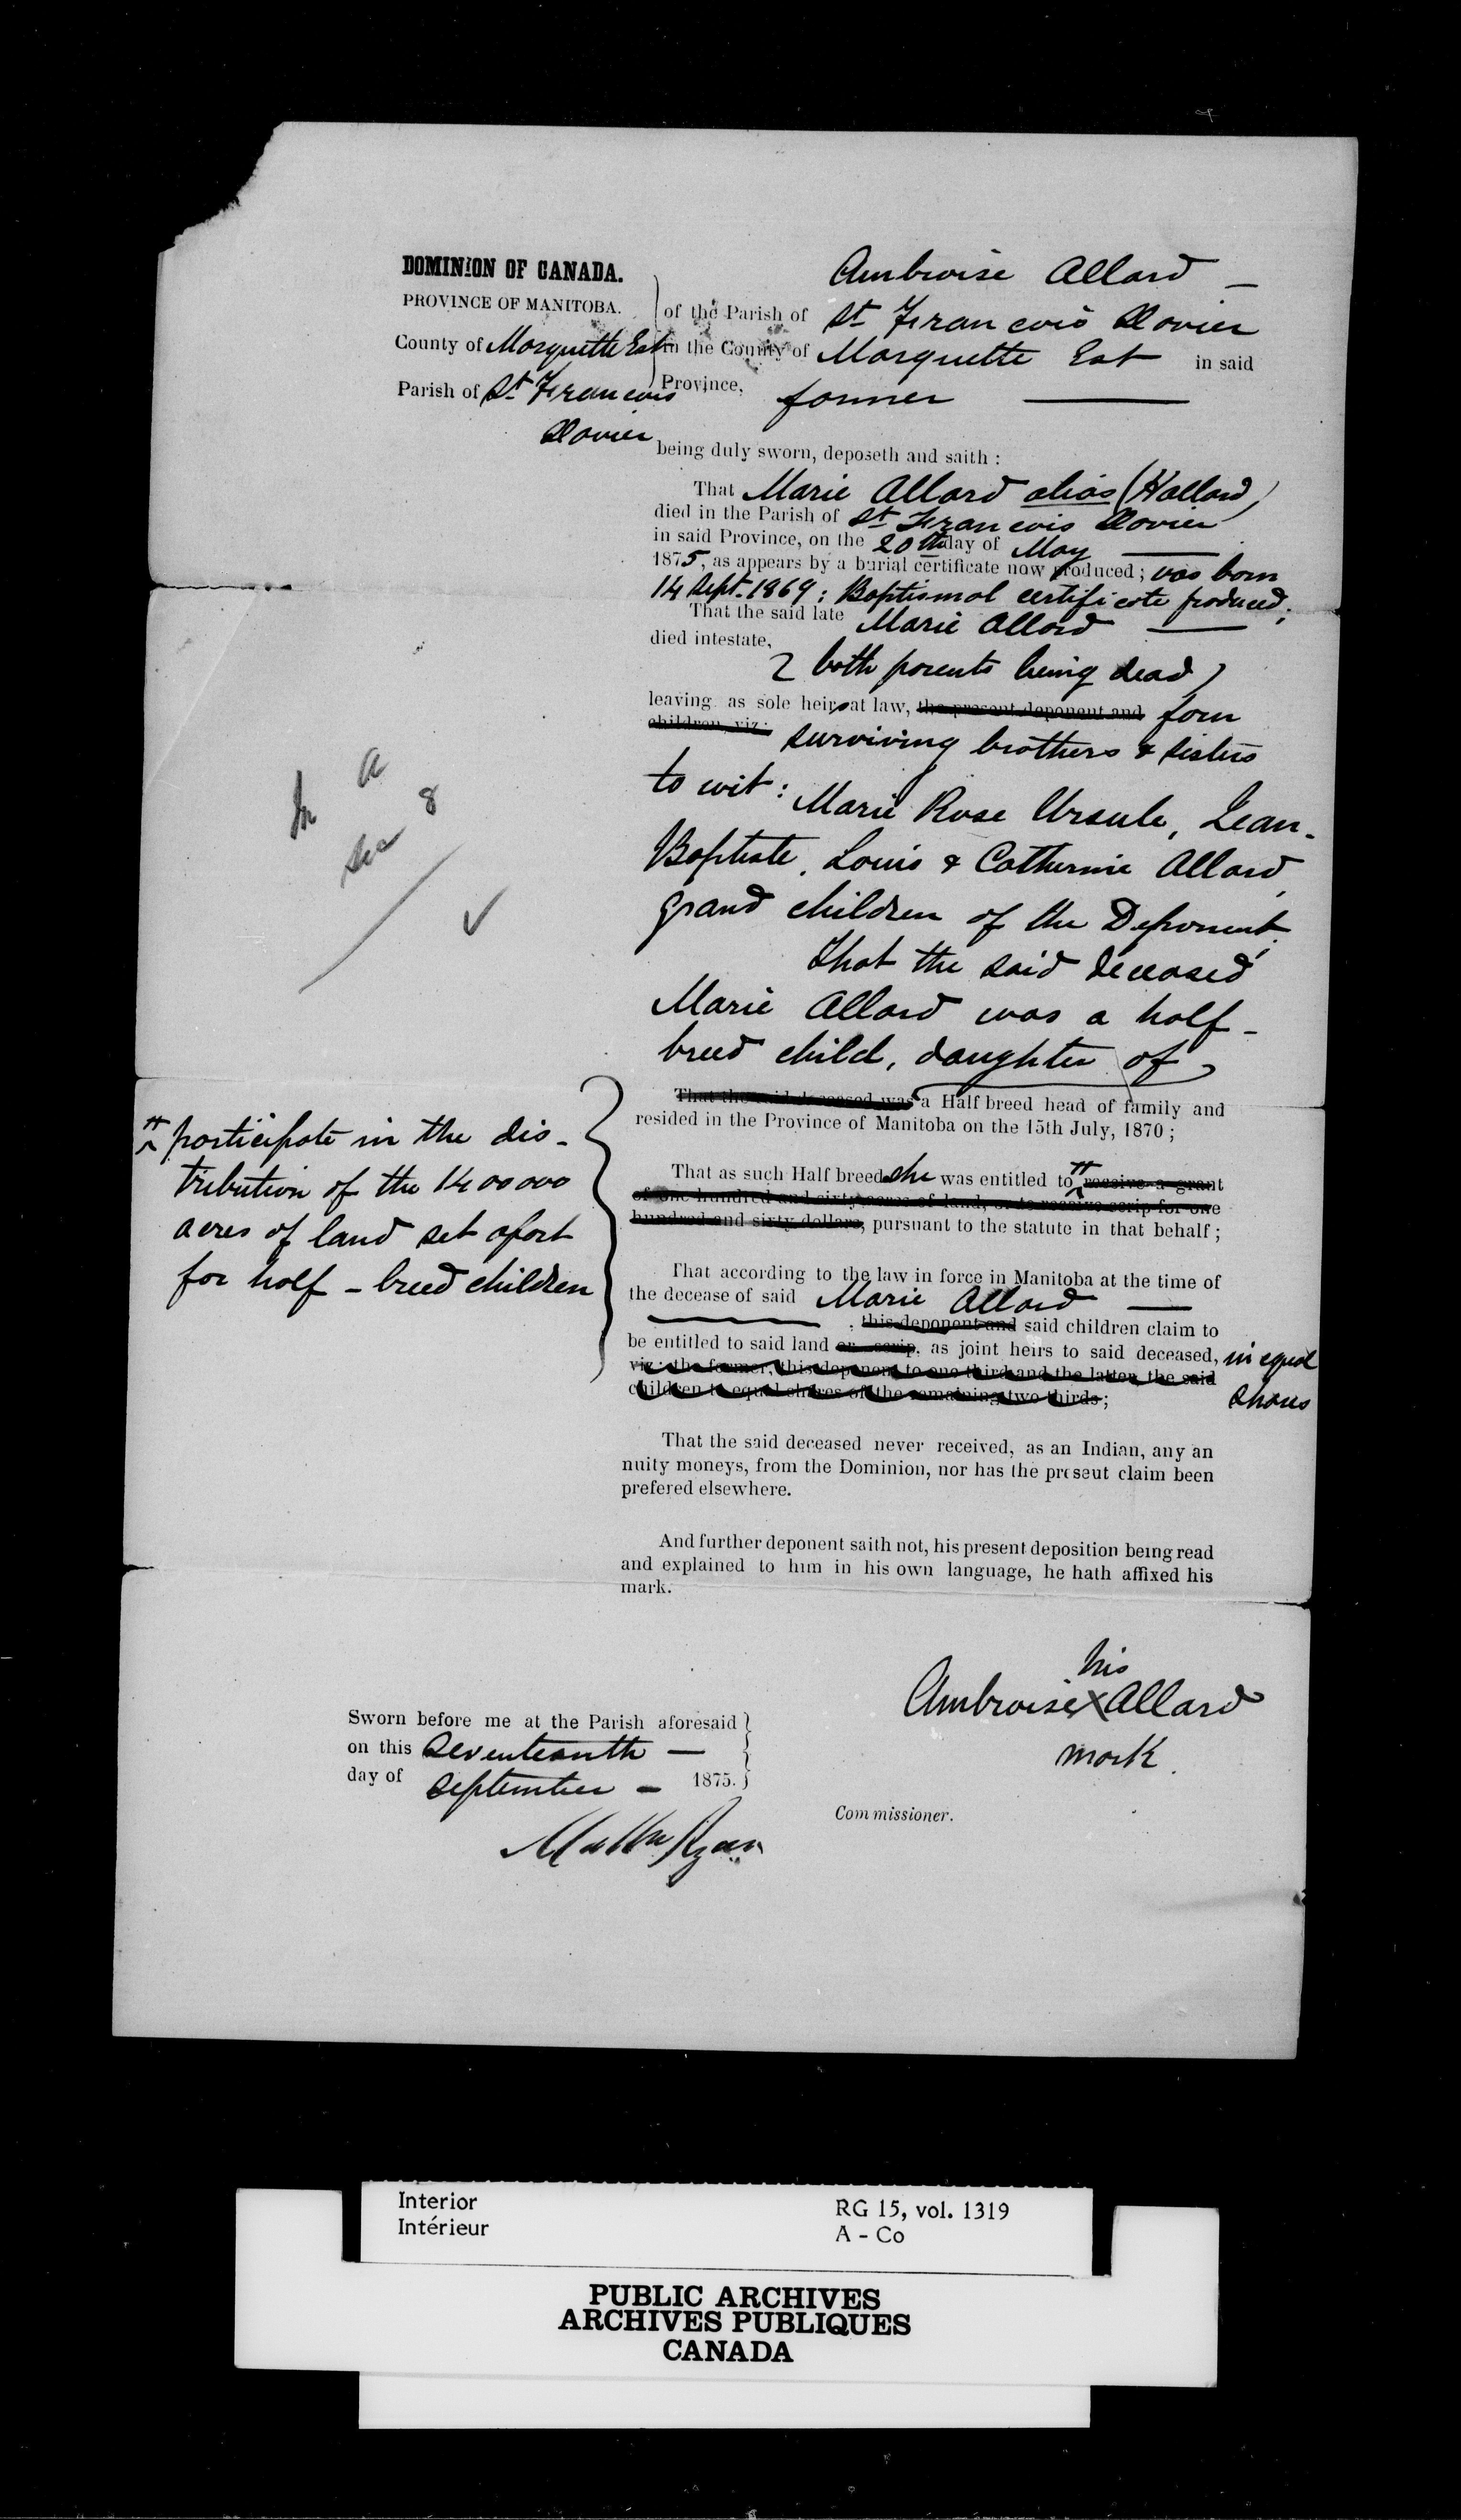 DOMINION OF CANADA.
PROVINCE OF MANITOBA.
County of Marquette East
Parish of St. Francois
Xavier
Ambroise Allard —
of the Parish of St Francois Xavier
in the County of Marquette East in said
Province, farmer —
being duly sworn, deposeth and saith :
That Marie Allard alias (Hallard)
died in the Parish of St Francois Xavier
in said Province, on the 20th day of May —
1875, as appears by a burial certificate now produced; was born
14 Sept. 1869 : Baptismal certificate produced;
That the said late Marie Allard —
died intestate,
(both parents being dead)
leaving as sole heirs at law, the present deponent and four
children, viz: surviving brothers & sisters
to wit : Marie Rose Ursule, Jean-
Baptiste, Louis & Catherine Allard,
grand children of the Deponent.
that the said deceased
Marie Allard was a half-
breed child, daughter of
That the said deceased was a Half breed head of family and
resided in the Province of Manitoba on the 15th July, 1870 ;
That as such Half breed she was entitled to receive a grant
of one hundred and sixty acres of land, or to receive scrip for one
hundred and sixty dollars, pursuant to the statute in that behalf ;
participate in the dis-
tribution of the 1400000
acres of land set apart
for half-breed children
That according to the law in force in Manitoba at the time of
the decease of said Marie Allard —
, this deponent and said children claim to
be entitled to said land or scrip, as joint heirs to said deceased, in equal
viz: the former, this deponent to one third and the latter, the said
children to equal shares of the remaining two thirds ; shares
That the said deceased never received, as an Indian, any an
nuity moneys, from the Dominion, nor has the present claim been
prefered elsewhere.
And further deponent saith not, his present deposition being read
and explained to him in his own language, he hath affixed his
mark.
his
Ambroise X Allard
mark.
Sworn before me at the Parish aforesaid
on this Seventeenth —
day of September — 1875.
Matthew Ryan
Commissioner.
Interior
Intérieur
RG 15, vol. 1319
A - Co
PUBLIC ARCHIVES
ARCHIVES PUBLIQUES
CANADA